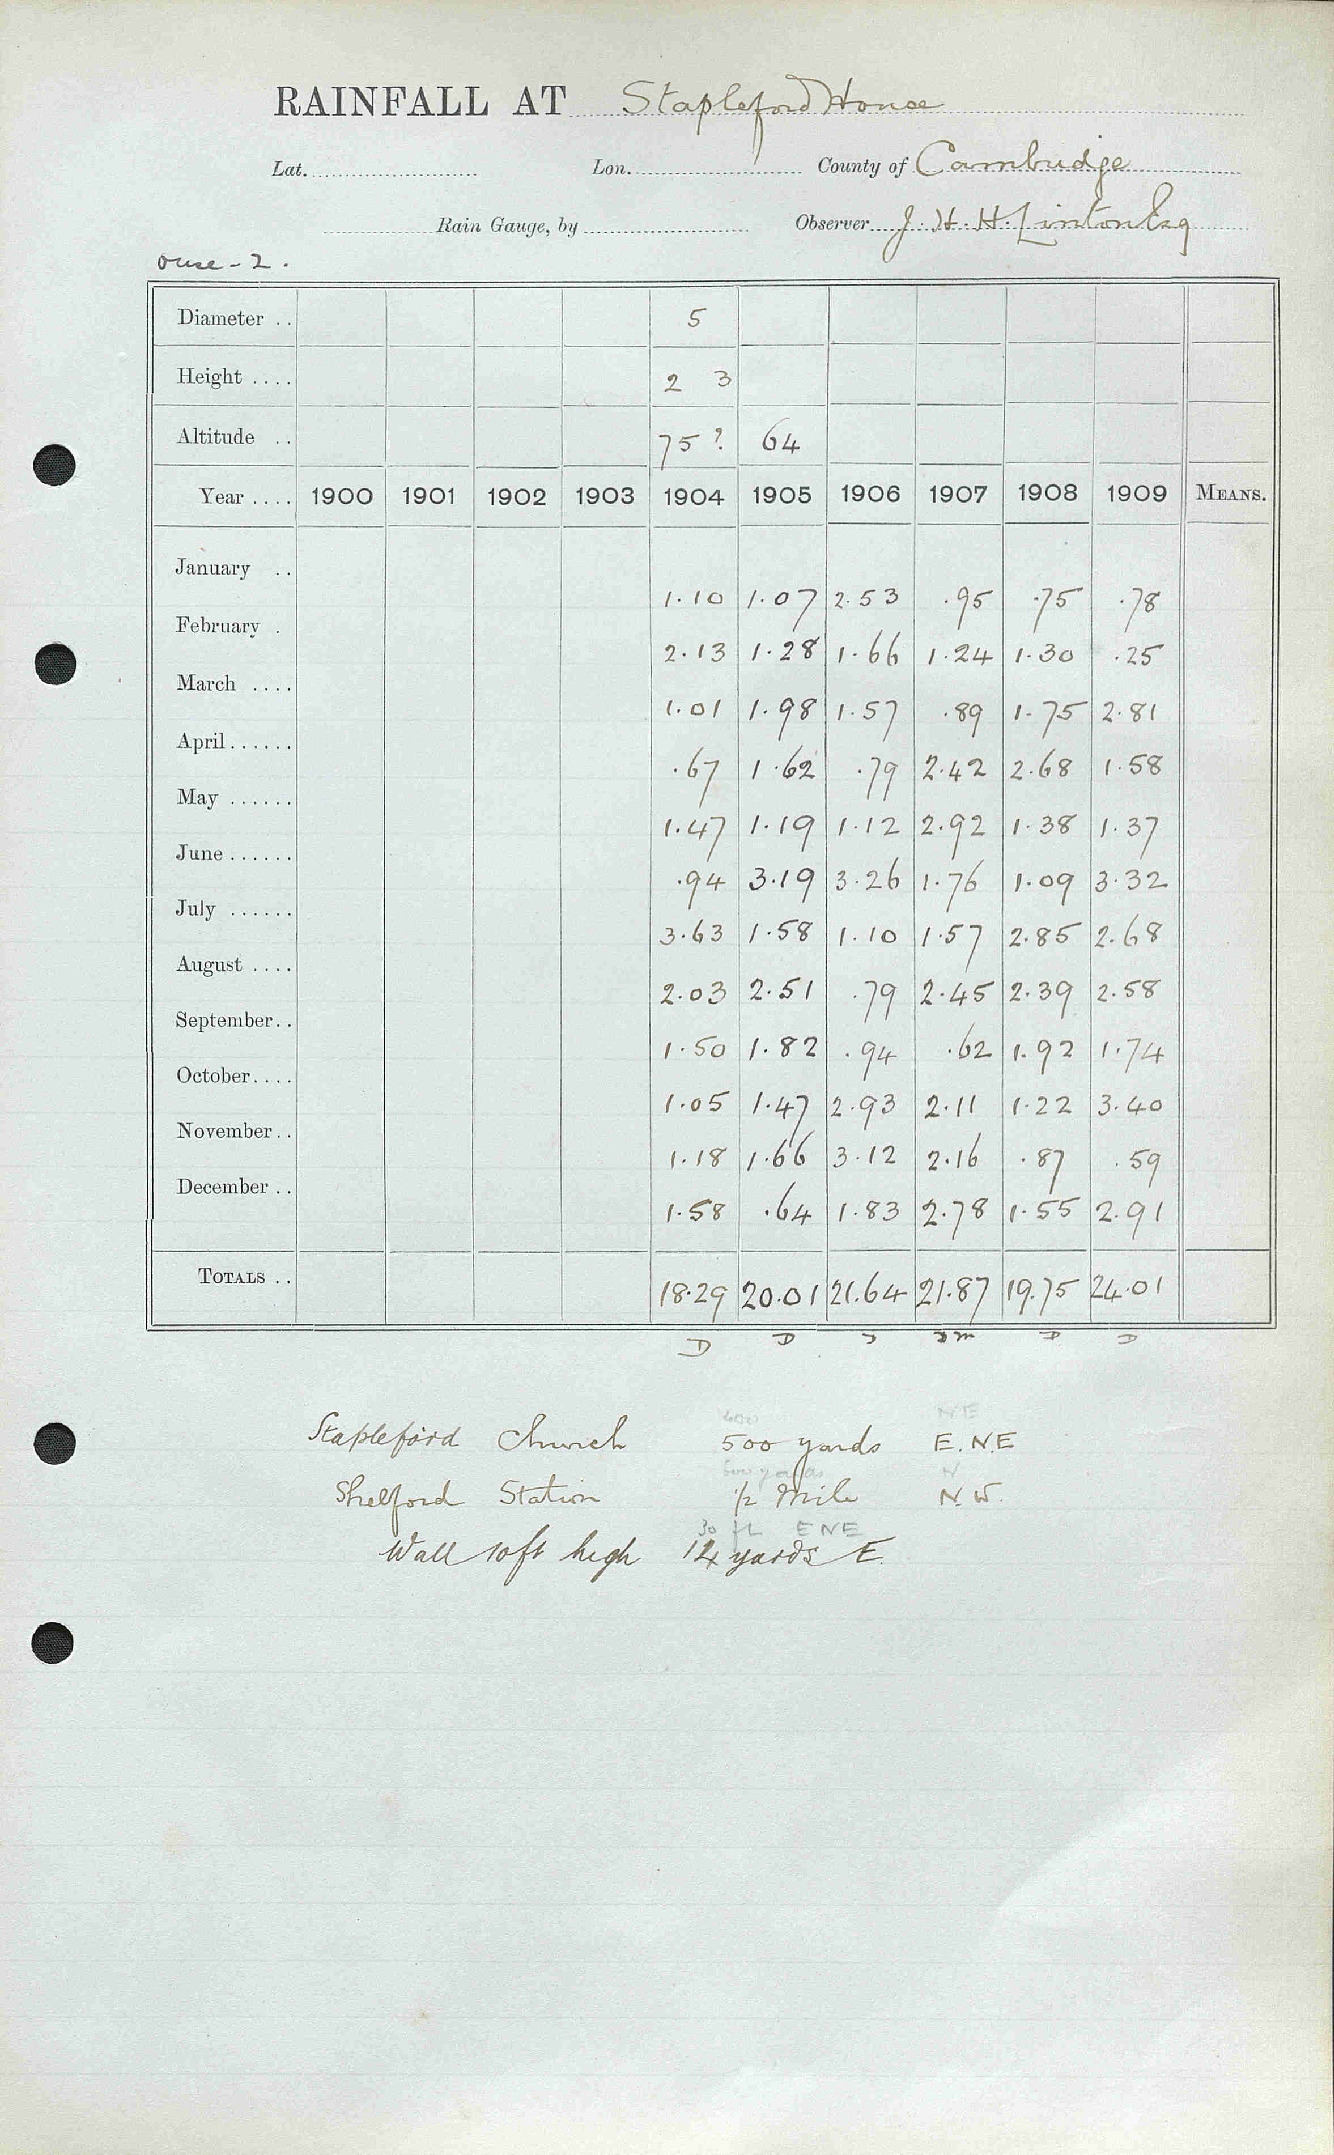 RAINFALL AT Stapleford House
Lat. Lon. County of Cambridge
Rain Gauge, by Observer J. H. H. Linton Esq
Ouse - 2.
Diameter .. 5
Height .... 2 3
Altitude .. 75? 64
Year .... 1900 1901 1902 1903 1904 1905 1906 1907 1908 1909 MEANS.
January .. 1.10 1.07 2.53 .95 .75 .78
February . 2.13 1.28 1.66 1.24 1.30 .25
March .... 1.01 1.98 1.57 .89 1.75 2.81
April ...... .67 1.62 .79 2.42 2.68 1.58
May ...... 1.47 1.19 1.12 2.92 1.38 1.37
June ...... .94 3.19 3.26 1.76 1.09 3.32
July ...... 3.63 1.58 1.10 1.57 2.85 2.68
August .... 2.03 2.51 .79 2.45 2.39 2.58
September .. 1.50 1.82 .94 .62 1.92 1.74
October .... 1.05 1.47 2.93 2.11 1.22 3.40
November .. 1.18 1.66 3.12 2.16 .87 .59
December .. 1.58 .64 1.83 2.78 1.55 2.91
TOTALS .. 18.29 20.01 21.64 21.87 19.75 24.01
D D D D
600 NE
Stapleford Church 500 yards E.NE
600 yards N
Shelford Station 1/2 Mile N.W.
30 ft ENE
Wall 10ft high 14 yards E.